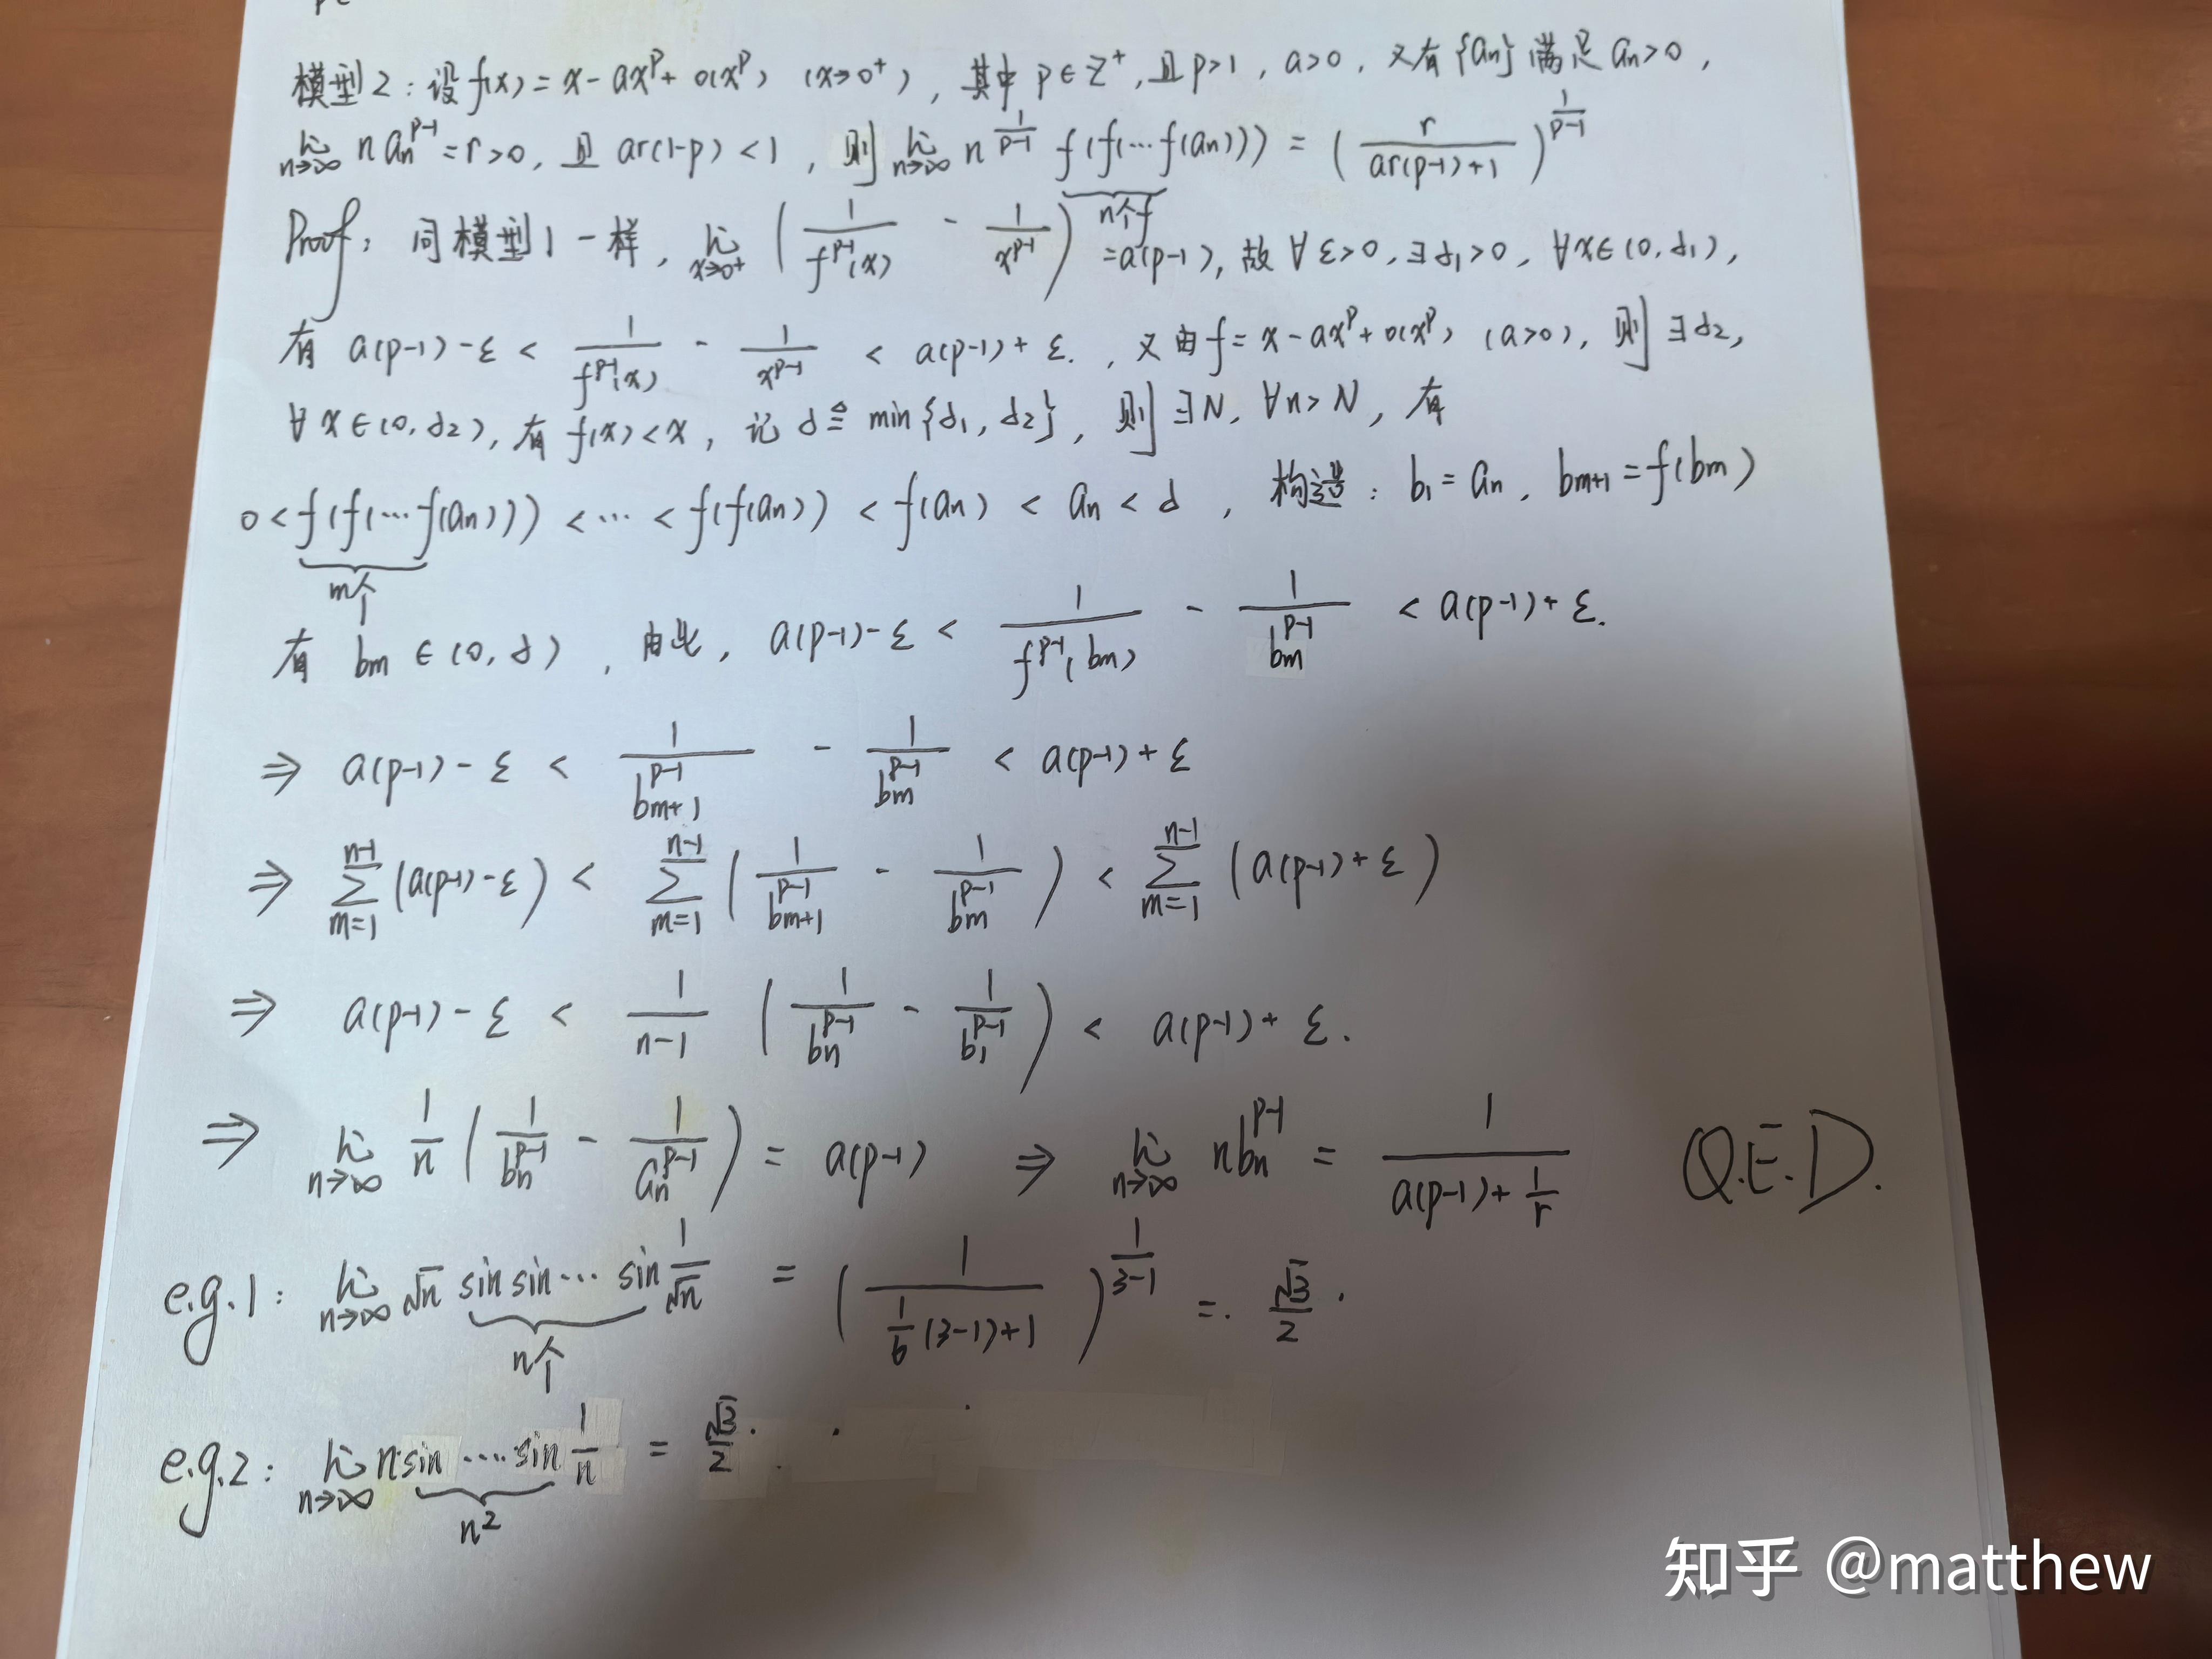 模型2：设f(x)=x-ax^p+o(x^p) (x→0⁺)，其中 p∈Z⁺，且p>1，a>0，又有{an}满足 an>0，
lim_{n→∞} n an^{p-1}=r>0，且 ar(1-p)<1，则 lim_{n→∞} n^{1/(p-1)} f(f(…f(an))) = (r/(ar(p-1)+1))^{1/(p-1)}
n个f
Proof：同模型1一样，lim_{x→0⁺} (1/f^{p-1}(x) - 1/x^{p-1}) =a(p-1)，故∀ε>0，∃δ₁>0，∀x∈(0,δ₁)，
有 a(p-1)-ε < 1/f^{p-1}(x) - 1/x^{p-1} < a(p-1)+ε.，又由f=x-ax^p+o(x^p) (a>0)，则∃δ₂，
∀x∈(0,δ₂)，有f(x)<x，记δ≜min{δ₁,δ₂}，则∃N，∀n>N，有
0<f(f(…f(an)))<…<f(f(an))<f(an)<an<δ，构造：b₁=an，bm+1=f(bm)
m个
有 bm∈(0,δ)，由此，a(p-1)-ε < 1/f^{p-1}(bm) - 1/bm^{p-1} < a(p-1)+ε.
⇒ a(p-1)-ε < 1/bm+1^{p-1} - 1/bm^{p-1} < a(p-1)+ε
⇒ ∑_{m=1}^{n-1}(a(p-1)-ε) < ∑_{m=1}^{n-1}(1/bm+1^{p-1} - 1/bm^{p-1}) < ∑_{m=1}^{n-1}(a(p-1)+ε)
⇒ a(p-1)-ε < 1/(n-1) (1/bn^{p-1} - 1/b₁^{p-1}) < a(p-1)+ε.
⇒ lim_{n→∞} 1/n (1/bn^{p-1} - 1/an^{p-1}) = a(p-1) ⇒ lim_{n→∞} n bn^{p-1} = 1/(a(p-1)+1/r) Q.E.D.
e.g.1：lim_{n→∞} √n sin sin… sin 1/√n = (1/(1/6(3-1)+1))^{1/(3-1)} = √3/2.
n个
e.g.2：lim_{n→∞} n sin ….sin 1/n = √3/2.
n²
知乎 @matthew